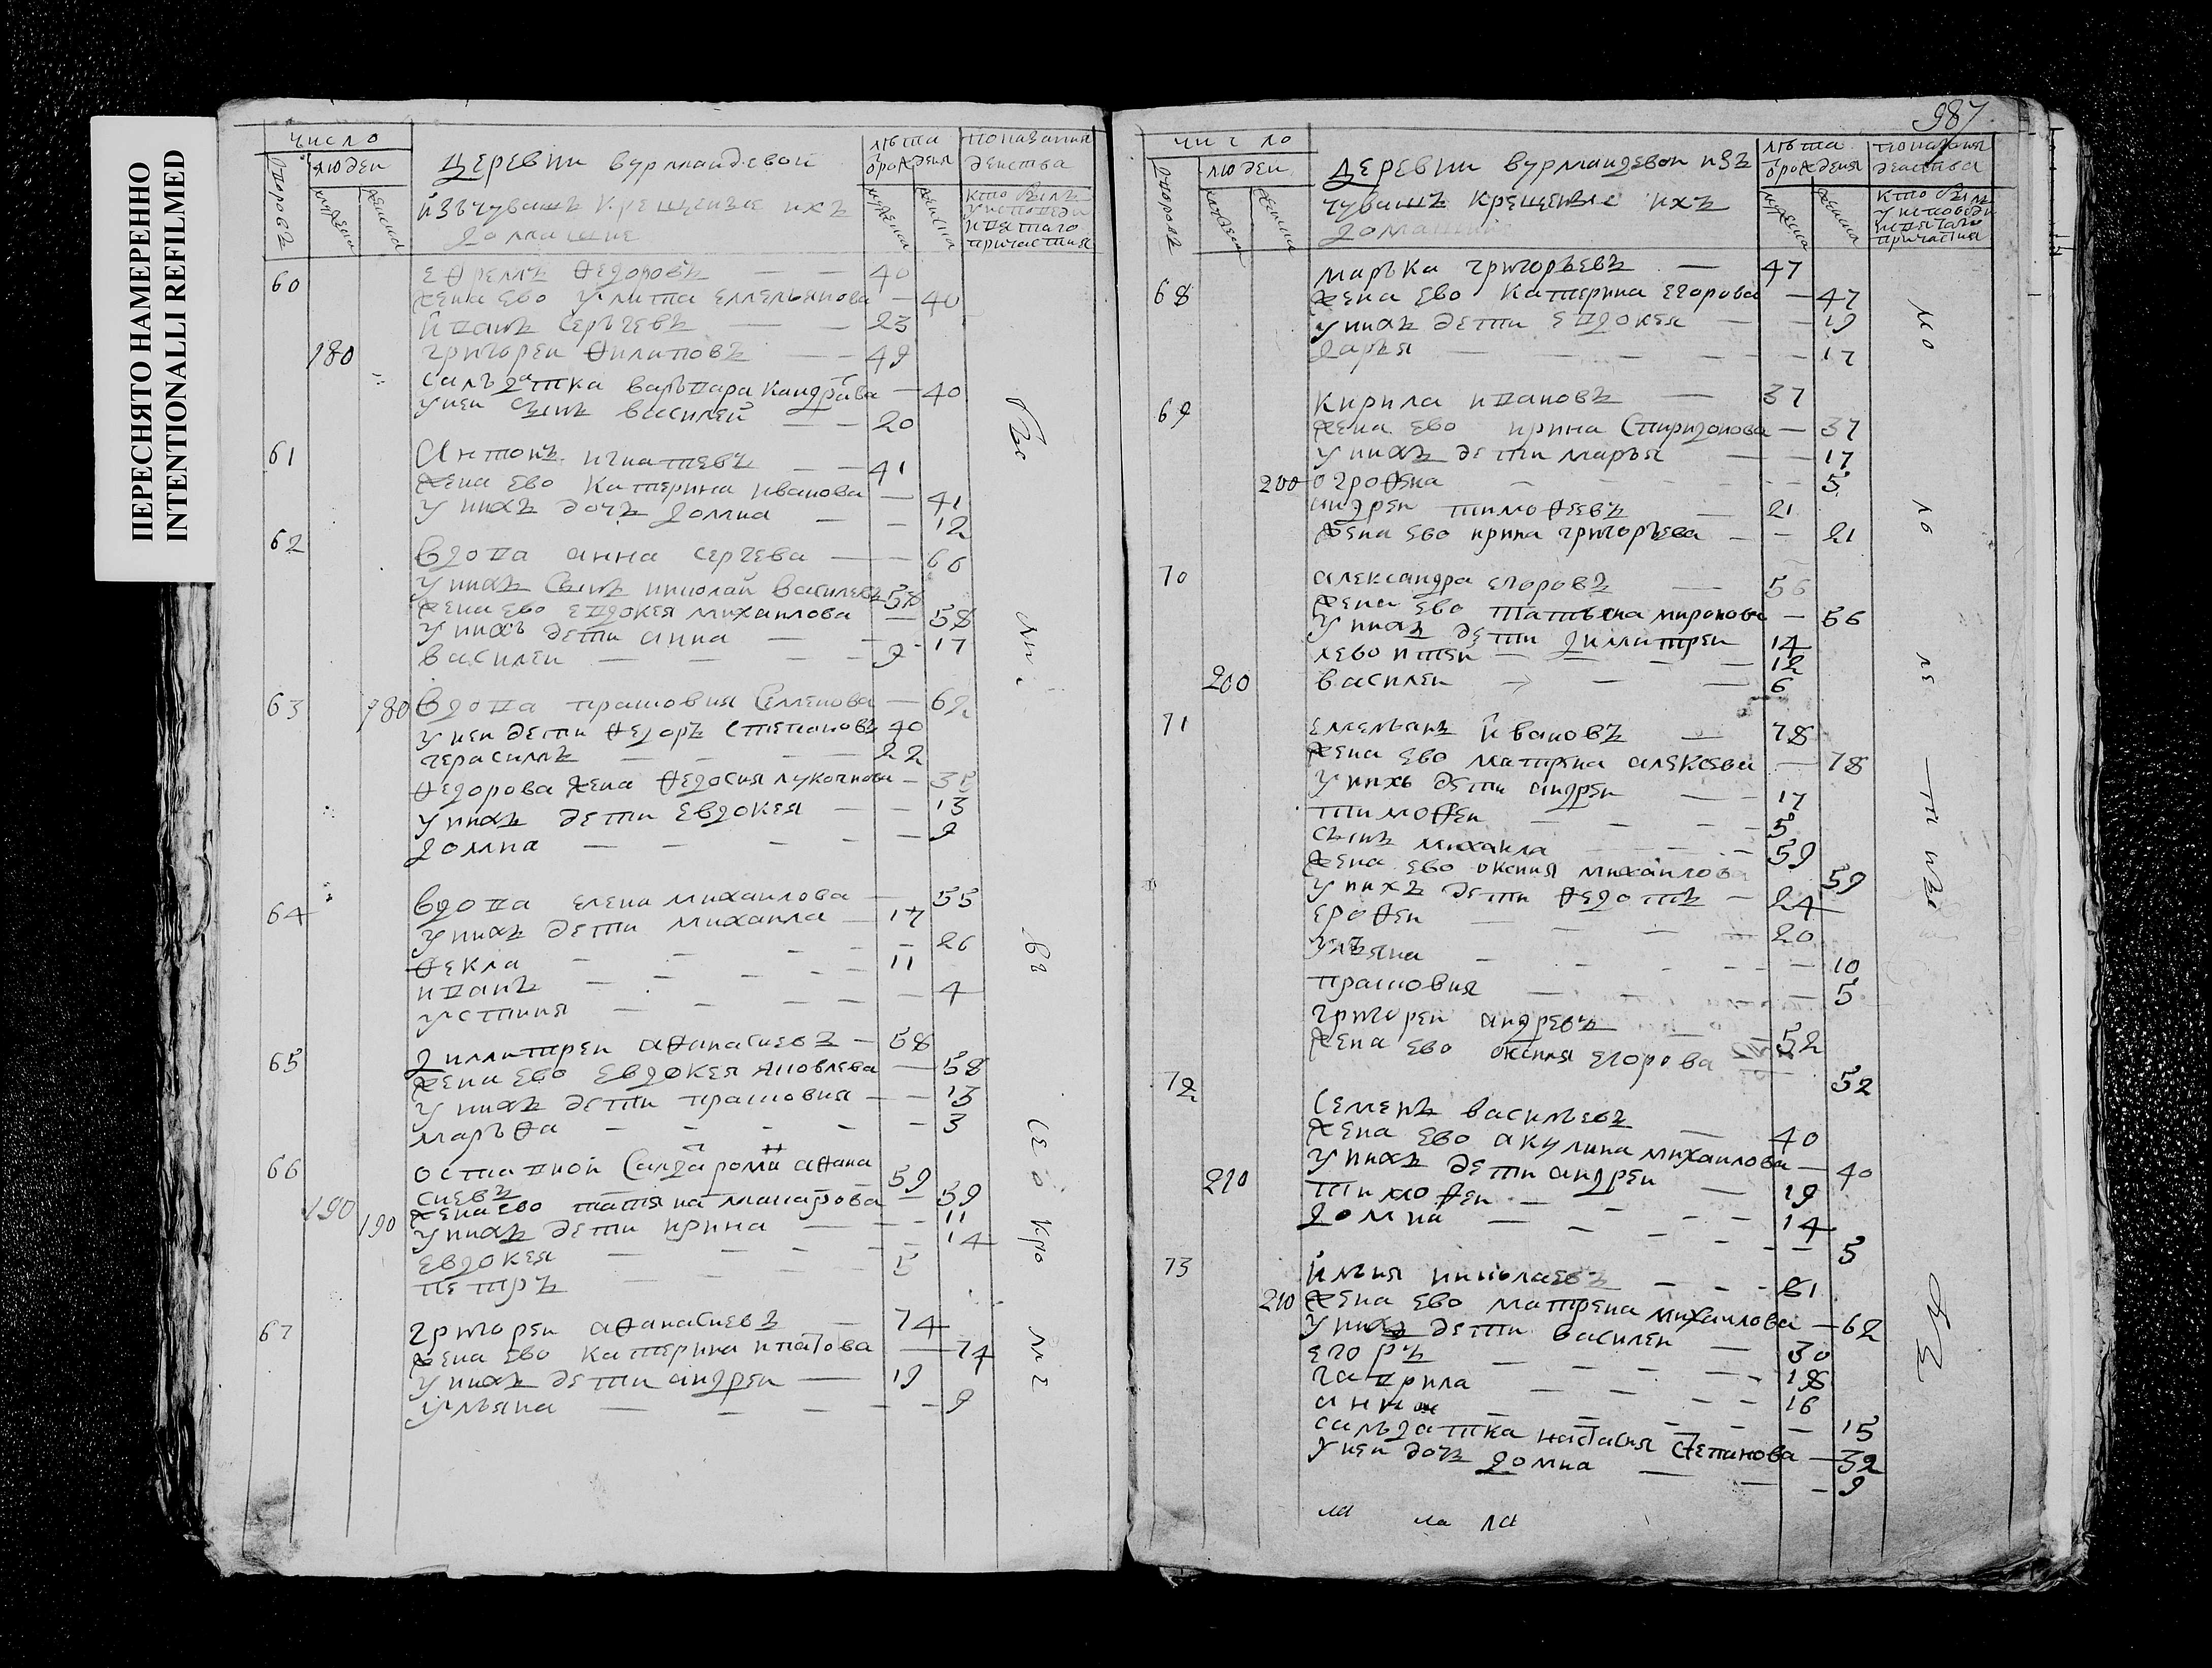 ПЕРЕСНЯТО НАМЕРЕННО
INTENTIONALLI REFILMED
число
люден
дворовъ
мужеска
женска
Деревни вурмандевой
изъ чувашъ крещеные ихъ
домашние
лѣта
мужеска
женска
показания
действа
кто былъ
у исповеди
и святаго
причастия
60
Ефремъ Ѳедоровъ — — 40
жена ево улита емельянова — 40
иванъ сергѣевъ — — 23
180 григореи Ѳилиповъ — — 49
салъдатка варъвара кандратева — 40
у неи сынъ василей — — 20
61
Антонъ игнатьевъ — — 41
жена ево катерина иванова — 41
у нихъ дочъ домна — — 12
62
вдова анна сергева — — 66
у нихъ сынъ николай василевъ 58
жена ево евдокея михаилова — 58
у нихъ дети анна — — 17
василеи — — — 9
63 180
вдова прасковия семенова — 62
у неи дети Ѳедоръ степановъ 40
герасимъ — — — 22
Ѳедорова жена Ѳедосия — 35
у нихъ дети евдокея — — 13
домна — — — — 9
64
вдова елена михаилова — 55
у нихъ дети михаила — 17
Ѳекла — — — — 26
иванъ — — — — 11
устиния — — — — 4
65
димитреи аѳанасиевъ — 58
жена ево евдокея яковлева — 58
у нихъ дети прасковия — — 13
маръѳа — — — — 3
66
аѳана
сиевъ 59
190 жена ево татяна макарова — 59
190 у нихъ дети ирина — — 11
евдокея — — — — 14
петръ — — — — 5
67
григореи аѳанасиевъ — 74
жена ево катерина ипатова — 74
у нихъ дети андреи — 19
улъяна — — — — 9
былъ
987
число
люден
дворовъ
мужеска
женска
Деревни вурмандевои изъ
чувашъ крещеные ихъ
домашние
лѣта
мужеска
женска
показания
действа
кто былъ
у исповеди
и святаго
причастия
68
маръка григоръевъ — 47
жена ево катерина егорова — 47
у нихъ дети евдокея — — 19
даръя — — — — 17
69
кирила ивановъ — 37
жена ево ирина спиридонова — 37
у нихъ дети маръя — — 17
200 огроѳена — — — 5
андреи тимоѳеевъ — 21
жена ево ирина григоръева — — 21
70
александра егоровъ — 56
жена ево татъяна миронова — 56
у нихъ дети димитреи — 14
левонтеи — — — 12
200 василеи — — — 6
71
емельянъ ивановъ — 78
жена ево матрена алексеева — 78
у нихъ дети андреи — 17
тимоѳеи — — — 5
сынъ михаила — — — 59
жена ево оксиния михаилова 59
у нихъ дети Ѳедотъ — 24
ероѳеи — — — 20
улъяна — — — — 10
прасковия — — — 5
григореи андреевъ — — 52
жена ево оксиния егорова — 52
72
семенъ василъевъ — 40
жена ево акулина михаилова — 40
у нихъ дети андреи — 19
210 тимоѳеи — — — 14
домна — — — — 5
73
илъия николаевъ — — 61
210 жена ево матрена михаилова — 62
у нихъ дети василеи — 30
егоръ — — — — 18
гаврила — — — 16
анна — — — — 15
салъдатка настасия степанова — 32
у неи дочъ домна — — — 9